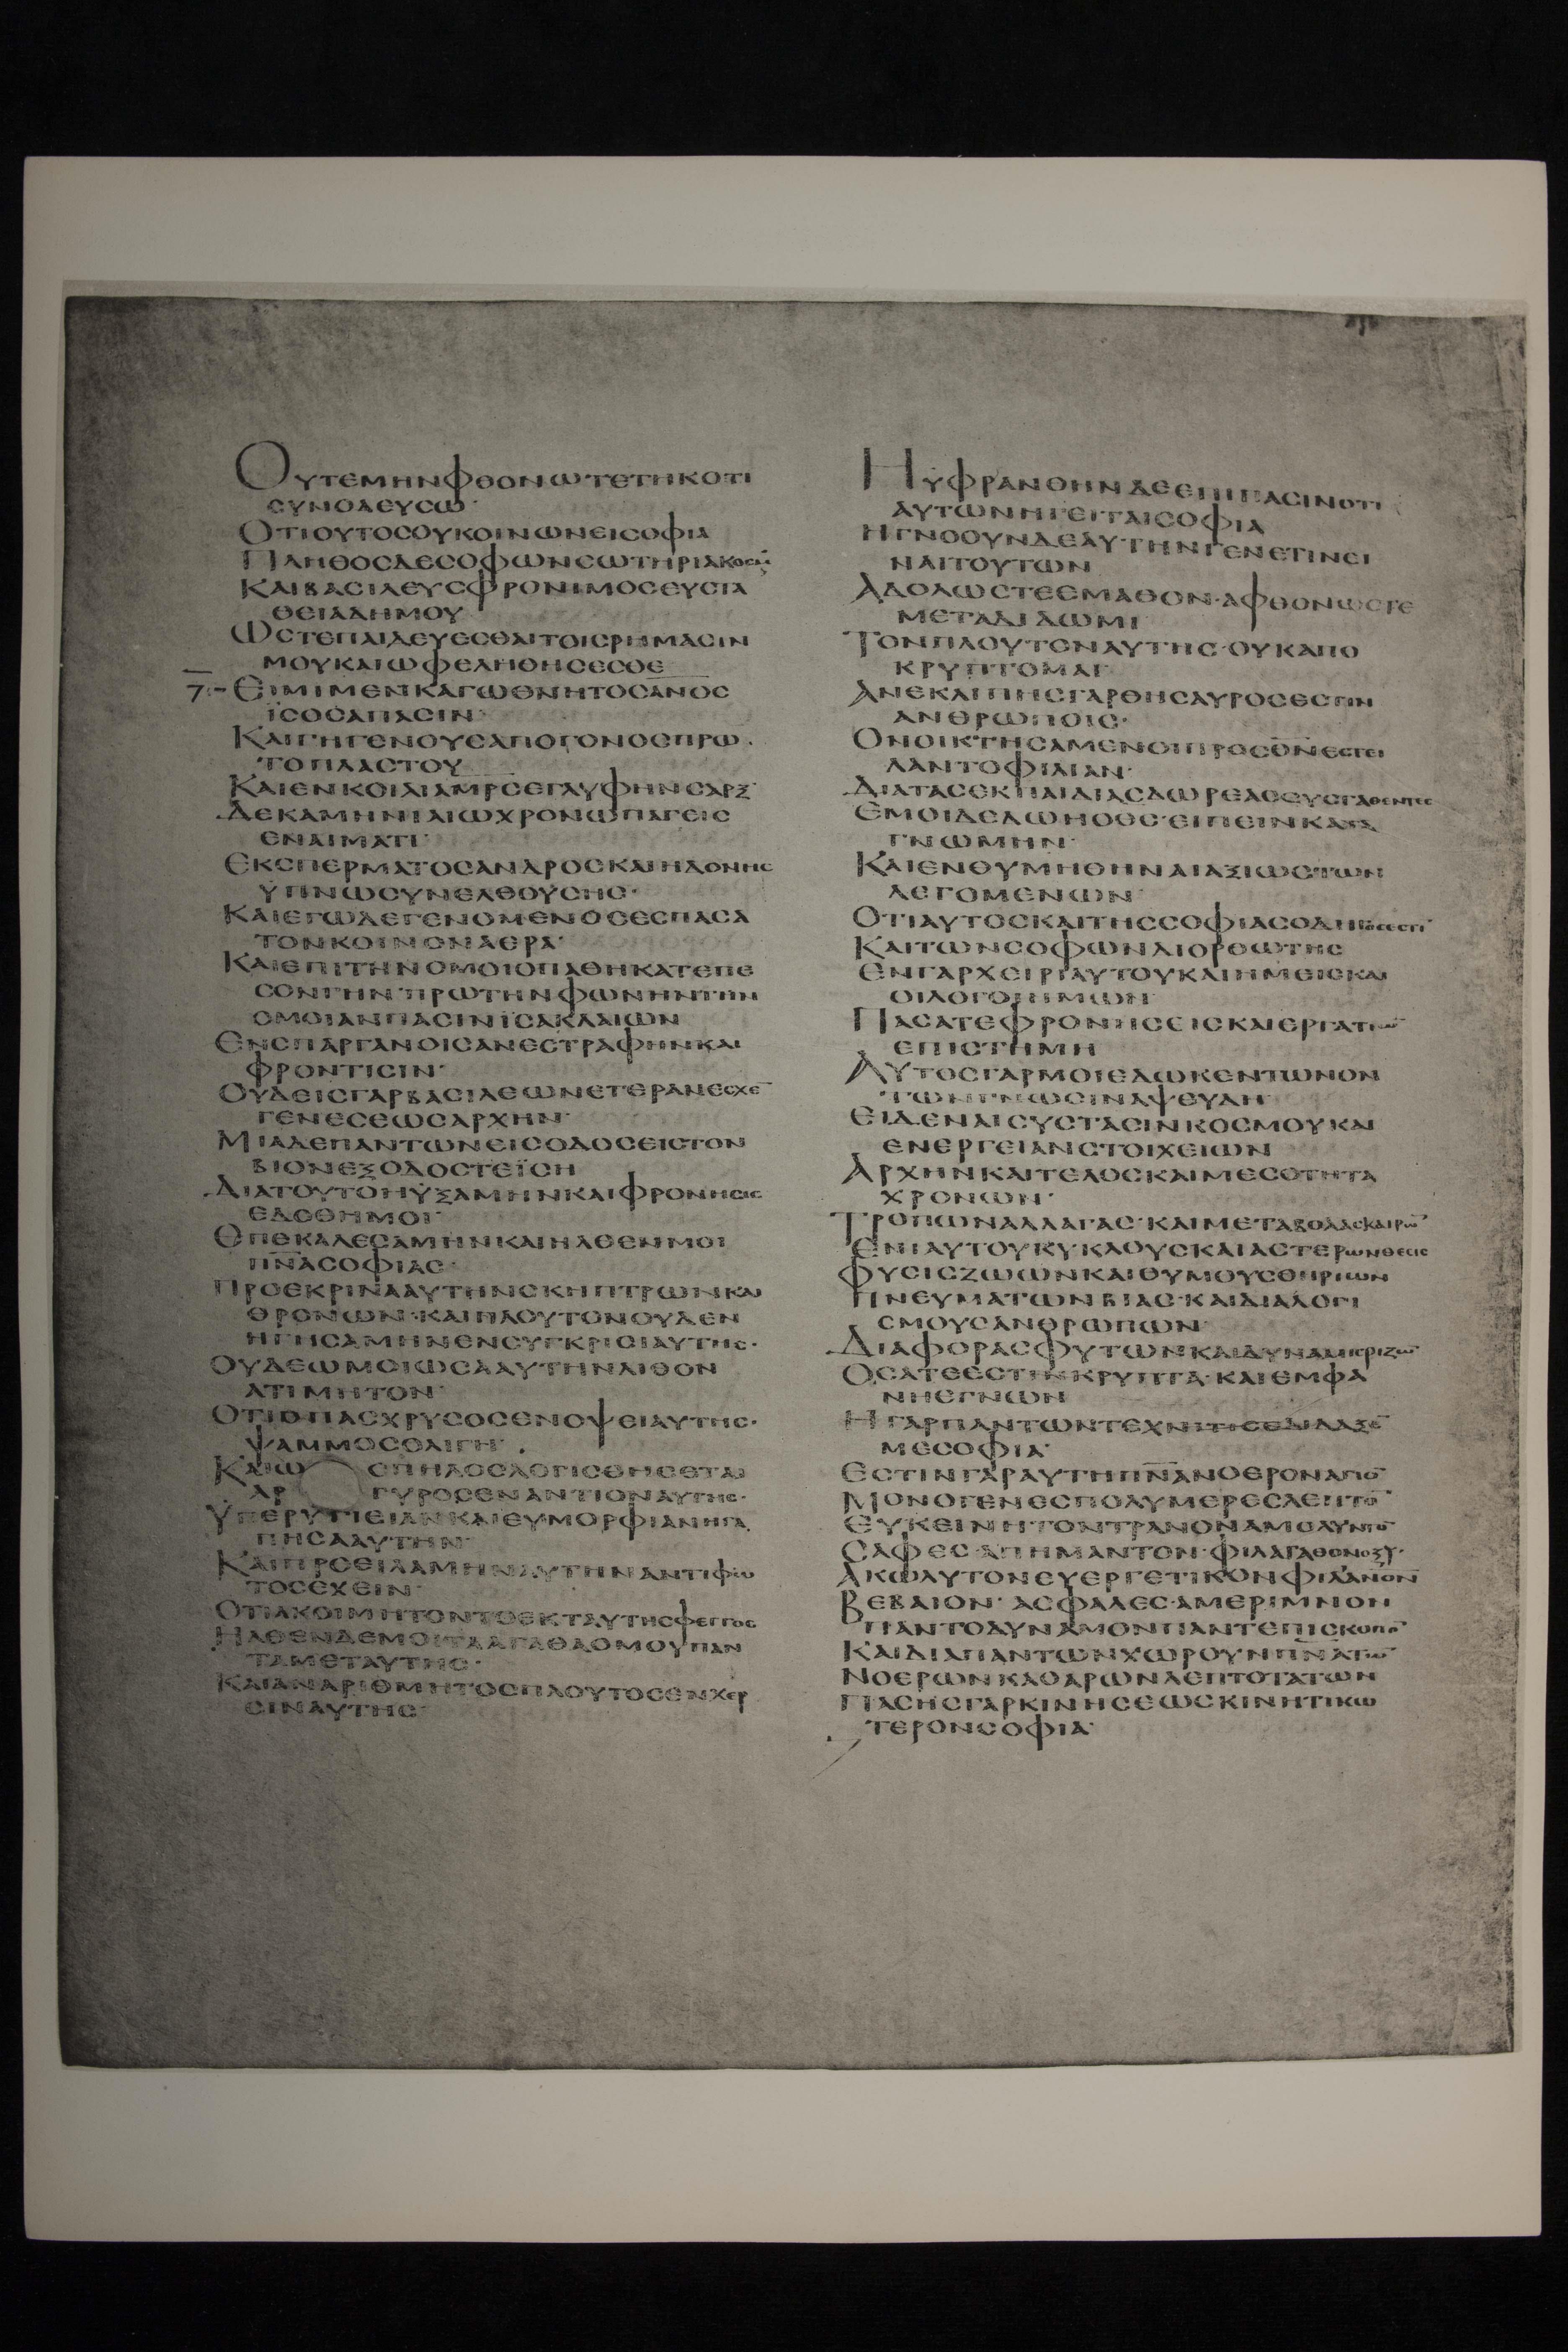 ΟΥΤΕΜΗΝΦΘΟΝΩΤΕΤΗΚΟΤΙ
ΣΥΝΟΔΕΥΣΩ·
ΟΤΙΟΥΤΟΣΟΥΚΟΙΝΩΝΕΙΣΟΦΙΑ
ΠΛΗΘΟΣΔΕΣΟΦΩΝΣΩΤΗΡΙΑΚΟΣΜ
ΚΑΙΒΑΣΙΛΕΥΣΦΡΟΝΙΜΟΣΕΥΣΤΑ
ΘΕΙΑΔΗΜΟΥ
ΩΣΤΕΠΑΙΔΕΥΕΣΘΑΙΤΟΙΣΡΗΜΑΣΙΝ
ΜΟΥΚΑΙΩΦΕΛΗΘΗΣΕΣΘΕ
7:- ΕΙΜΙΜΕΝΚΑΓΩΘΝΗΤΟΣΑΝΟΣ
ΪΣΟΣΑΠΑΣΙΝ·
ΚΑΙΓΗΓΕΝΟΥΣΑΠΟΓΟΝΟΣΠΡΩ
ΤΟΠΛΑΣΤΟΥ
ΚΑΙΕΝΚΟΙΛΙΑΜΡΣΕΓΛΥΦΗΝΣΑΡΞ·
ΔΕΚΑΜΗΝΙΑΙΩΧΡΟΝΩΠΑΓΕΙΣ
ΕΝΑΙΜΑΤΙ·
ΕΚΣΠΕΡΜΑΤΟΣΑΝΔΡΟΣΚΑΙΗΔΟΝΗΣ
ΫΠΝΩΣΥΝΕΛΘΟΥΣΗΣ·
ΚΑΙΕΓΩΔΕΓΕΝΟΜΕΝΟΣΕΣΠΑΣΑ
ΤΟΝΚΟΙΝΟΝΑΕΡΑ·
ΚΑΙΕΠΙΤΗΝΟΜΟΙΟΠΑΘΗΚΑΤΕΠΕ
ΣΟΝΓΗΝ·ΠΡΩΤΗΝΦΩΝΗΝΤΗΝ
ΟΜΟΙΑΝΠΑΣΙΝΪΣΑΚΛΑΙΩΝ
ΕΝΣΠΑΡΓΑΝΟΙΣΑΝΕΣΤΡΑΦΗΝΚΑΙ
ΦΡΟΝΤΙΣΙΝ·
ΟΥΔΕΙΣΓΑΡΒΑΣΙΛΕΩΝΕΤΕΡΑΝΕΣΧΕ
ΓΕΝΕΣΕΩΣΑΡΧΗΝ·
ΜΙΑΔΕΠΑΝΤΩΝΕΙΣΟΔΟΣΕΙΣΤΟΝ
ΒΙΟΝΕΞΟΔΟΣΤΕΪΣΗ
ΔΙΑΤΟΥΤΟΗΥΞΑΜΗΝΚΑΙΦΡΟΝΗΣΙΣ
ΕΔΟΘΗΜΟΙ·
ΕΠΕΚΑΛΕΣΑΜΗΝΚΑΙΗΛΘΕΝΜΟΙ
ΠΝΑΣΟΦΙΑΣ·
ΠΡΟΕΚΡΙΝΑΑΥΤΗΝΣΚΗΠΤΡΩΝΚΑΙ
ΘΡΟΝΩΝ·ΚΑΙΠΛΟΥΤΟΝΟΥΔΕΝ
ΗΓΗΣΑΜΗΝΕΝΣΥΓΚΡΙΣΙΑΥΤΗΣ·
ΟΥΔΕΩΜΟΙΩΣΑΑΥΤΗΝΛΙΘΟΝ
ΑΤΙΜΗΤΟΝ·
ΟΤΙΟΠΑΣΧΡΥΣΟΣΕΝΟΨΕΙΑΥΤΗΣ·
ΨΑΜΜΟΣΟΛΙΓΗ·
ΚΑΙΩΣΠΗΛΟΣΛΟΓΙΣΘΗΣΕΤΑΙ
ΑΡΓΥΡΟΣΕΝΑΝΤΙΟΝΑΥΤΗΣ·
ΫΠΕΡΥΓΙΕΙΑΝΚΑΙΕΥΜΟΡΦΙΑΝΗΓΑ
ΠΗΣΑΑΥΤΗΝ·
ΚΑΙΠΡΟΕΙΛΑΜΗΝΑΥΤΗΝΑΝΤΙΦΩ
ΤΟΣΕΧΕΙΝ·
ΟΤΙΑΚΟΙΜΗΤΟΝΤΟΕΚΤΑΥΤΗΣΦΕΓΓΟΣ
ΗΛΘΕΝΔΕΜΟΙΤΑΑΓΑΘΑΟΜΟΥΠΑΝ
ΤΑΜΕΤΑΥΤΗΣ·
ΚΑΙΑΝΑΡΙΘΜΗΤΟΣΠΛΟΥΤΟΣΕΝΧΕΡ
ΣΙΝΑΥΤΗΣ·
ΗΥΦΡΑΝΘΗΝΔΕΕΠΙΠΑΣΙΝΟΤΙ
ΑΥΤΩΝΗΓΕΙΤΑΙΣΟΦΙΑ
ΗΓΝΟΟΥΝΔΕΑΥΤΗΝΓΕΝΕΤΙΝΕΙ
ΝΑΙΤΟΥΤΩΝ
ΑΔΟΛΩΣΤΕΕΜΑΘΟΝ·ΑΦΘΟΝΩΣΤΕ
ΜΕΤΑΔΙΔΩΜΙ
ΤΟΝΠΛΟΥΤΟΝΑΥΤΗΣ·ΟΥΚΑΠΟ
ΚΡΥΠΤΟΜΑΙ·
ΑΝΕΚΛΙΠΗΣΓΑΡΘΗΣΑΥΡΟΣΕΣΤΙΝ
ΑΝΘΡΩΠΟΙΣ·
ΟΝΟΙΚΤΗΣΑΜΕΝΟΙΠΡΟΣΘΝΕΣΤΕΙ
ΛΑΝΤΟΦΙΛΙΑΝ·
ΔΙΑΤΑΣΕΚΠΑΙΔΙΑΣΔΩΡΕΑΣΣΥΣΤΑΘΕΝΤΕΣ
ΕΜΟΙΔΕΔΩΗΟΘΣ·ΕΙΠΕΙΝΚΑΤΑ
ΓΝΩΜΗΝ·
ΚΑΙΕΝΘΥΜΗΘΗΝΑΙΑΞΙΩΣΤΩΝ
ΛΕΓΟΜΕΝΩΝ·
ΟΤΙΑΥΤΟΣΚΑΙΤΗΣΣΟΦΙΑΣΟΔΗΓΟΣΕΣΤΙ
ΚΑΙΤΩΝΣΟΦΩΝΔΙΟΡΘΩΤΗΣ
ΕΝΓΑΡΧΕΙΡΙΑΥΤΟΥΚΑΙΗΜΕΙΣΚΑΙ
ΟΙΛΟΓΟΙΗΜΩΝ
ΠΑΣΑΤΕΦΡΟΝΗΣΕΙΣΚΑΙΕΡΓΑΤΙΩ
ΕΠΙΣΤΗΜΗ
ΑΥΤΟΣΓΑΡΜΟΙΕΔΩΚΕΝΤΩΝΟΝ
ΤΩΝΓΝΩΣΙΝΑΨΕΥΔΗ·
ΕΙΔΕΝΑΙΣΥΣΤΑΣΙΝΚΟΣΜΟΥΚΑΙ
ΕΝΕΡΓΕΙΑΝΣΤΟΙΧΕΙΩΝ
ΑΡΧΗΝΚΑΙΤΕΛΟΣΚΑΙΜΕΣΟΤΗΤΑ
ΧΡΟΝΩΝ·
ΤΡΟΠΩΝΑΛΛΑΓΑΣ·ΚΑΙΜΕΤΑΒΟΛΑΣΚΑΙΡΩ
ΕΝΙΑΥΤΟΥΚΥΚΛΟΥΣΚΑΙΑΣΤΕΡΩΝΘΕΣΙΣ
ΦΥΣΙΣΖΩΩΝΚΑΙΘΥΜΟΥΣΘΗΡΙΩΝ
ΠΝΕΥΜΑΤΩΝΒΙΑΣ·ΚΑΙΔΙΑΛΟΓΙ
ΣΜΟΥΣΑΝΘΡΩΠΩΝ
ΔΙΑΦΟΡΑΣΦΥΤΩΝΚΑΙΔΥΝΑΜΙΣΡΙΖΩ
ΟΣΑΤΕΕΣΤΙΝΚΡΥΠΤΑ·ΚΑΙΕΜΦΑ
ΝΗΕΓΝΩΝ
ΗΓΑΡΠΑΝΤΩΝΤΕΧΝΙΤΙΣΕΔΙΔΑΞΕ
ΜΕΣΟΦΙΑ·
ΕΣΤΙΝΓΑΡΑΥΤΗΠΝΑΝΟΕΡΟΝΑΓΙΟ
ΜΟΝΟΓΕΝΕΣΠΟΛΥΜΕΡΕΣΛΕΠΤΟ
ΕΥΚΕΙΝΗΤΟΝΤΡΑΝΟΝΑΜΟΛΥΝΤΟ
ΣΑΦΕΣ·ΑΠΗΜΑΝΤΟΝ·ΦΙΛΑΓΑΘΟΝΟΞΥ·
ΑΚΩΛΥΤΟΝΕΥΕΡΓΕΤΙΚΟΝΦΙΛΑΝΟΝ
ΒΕΒΑΙΟΝ·ΑΣΦΑΛΕΣ·ΑΜΕΡΙΜΝΟΝ
ΠΑΝΤΟΔΥΝΑΜΟΝΠΑΝΤΕΠΙΣΚΟΠΟ
ΚΑΙΔΙΑΠΑΝΤΩΝΧΩΡΟΥΝΠΝΑΤΩ
ΝΟΕΡΩΝΚΑΘΑΡΩΝΛΕΠΤΟΤΑΤΩΝ
ΠΑΣΗΣΓΑΡΚΙΝΗΣΕΩΣΚΙΝΗΤΙΚΩ
ΤΕΡΟΝΣΟΦΙΑ·